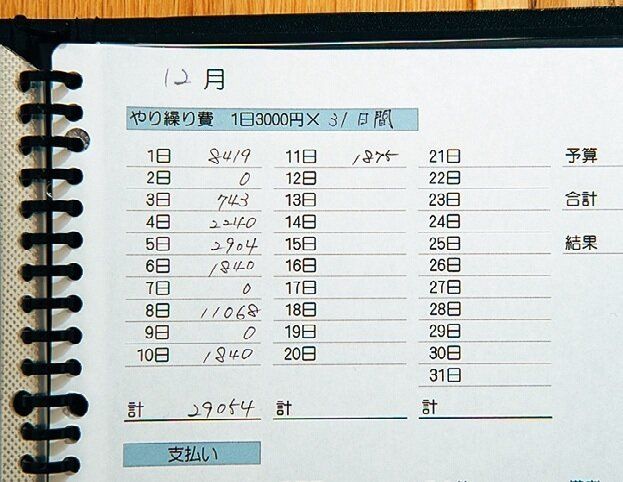 12月
やり繰り費 1日3000円× 31日間
1日 8419
2日 0
3日 743
4日 2240
5日 2904
6日 1840
7日 0
8日 11068
9日 0
10日 1840
計 29054
11日 1875
12日
13日
14日
15日
16日
17日
18日
19日
20日
計
21日
22日
23日
24日
25日
26日
27日
28日
29日
30日
31日
計
予算
合計
結果
支払い